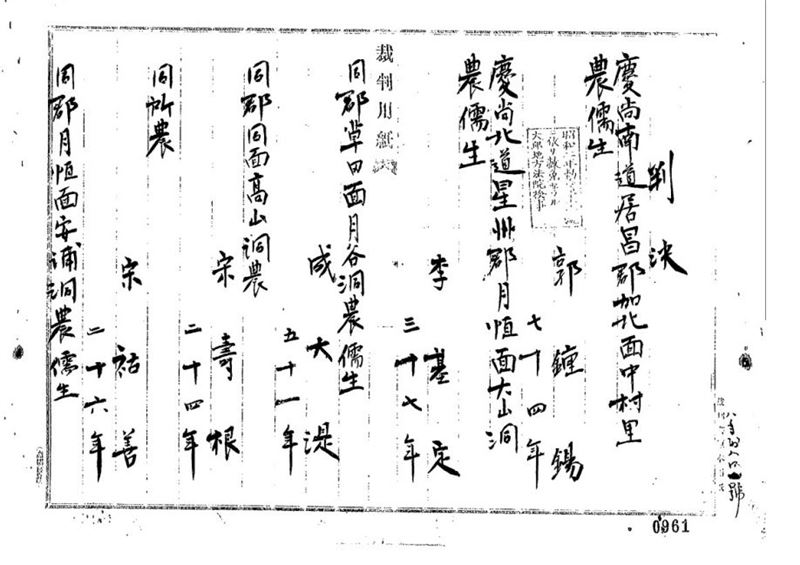 判決
慶尚南道居昌郡加北面中村里
農儒生
郭鍾錫
七十四年
慶尚北道星州郡月恒面大山洞
農儒生
李基定
三十七年
裁判用紙
同郡草田面月谷洞農儒生
成大湜
五十一年
同郡同面高山洞農
宋壽根
二十四年
同所農
宋祐善
二十六年
同郡月恒面安浦洞農儒生
大邱地方法院検事
0961